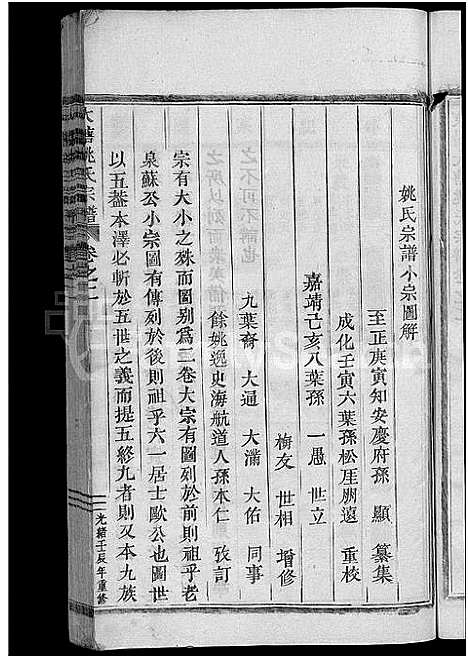 姚氏宗譜小宗圖解
至正庚寅知安慶府孫 顯 纂集
成化壬寅六葉孫松厓朋遠 重校
嘉靖己亥八葉孫 一愚 世立
梅友 世相 增修
九葉裔 大通 大滿 大佑 同事
餘姚逸史海航道人孫本仁 攷訂
宗有大小之殊而圖别爲二卷大宗有圖列於前則祖乎老
泉蘇公小宗圖有傳列於後則祖乎六一居士歐公也圖世
以五葢本澤必斬於五世之義而提五終九者則又本九族
姚氏宗譜 卷之二
光緒壬辰年重修